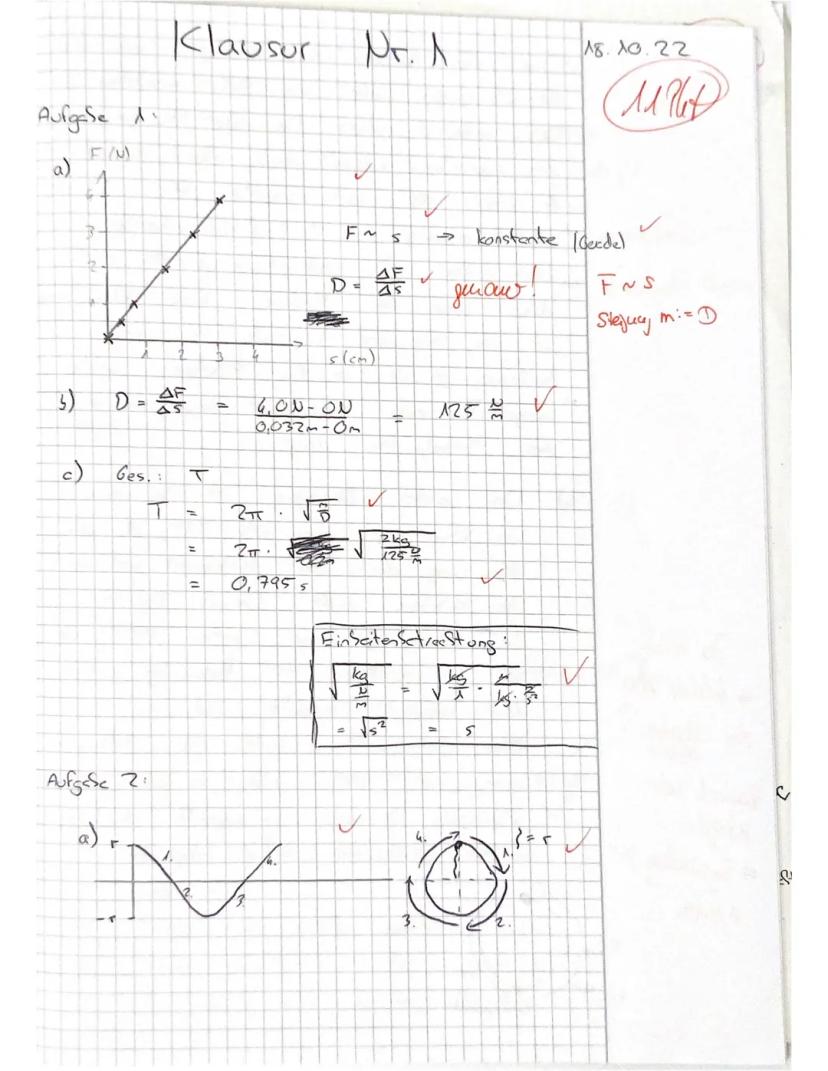 Klausur Nr. 1
18.10.22
11 Pkt
Aufgabe 1:
a)
F (N)
4
3
2
1
1 2 3 4
s (cm)
F ~ s → konstante (Gerade)
D = ΔF/Δs genauer!
F ~ s
Steigung m := D
b) D = ΔF/Δs = (4,0N - 0N)/(0,032m - 0m) = 125 N/m
c) Ges.: T
T = 2π · √(m/D)
= 2π · √(2kg/(125 N/m))
= 0,795 s
Einheitenbetrachtung:
√(kg/(N/m)) = √(kg/1 · m/(kg · m/s²))
= √s² = s
Aufgabe 2:
a) r
-r
1.
2.
3.
4.
4.
1.
} = r
3.
2.